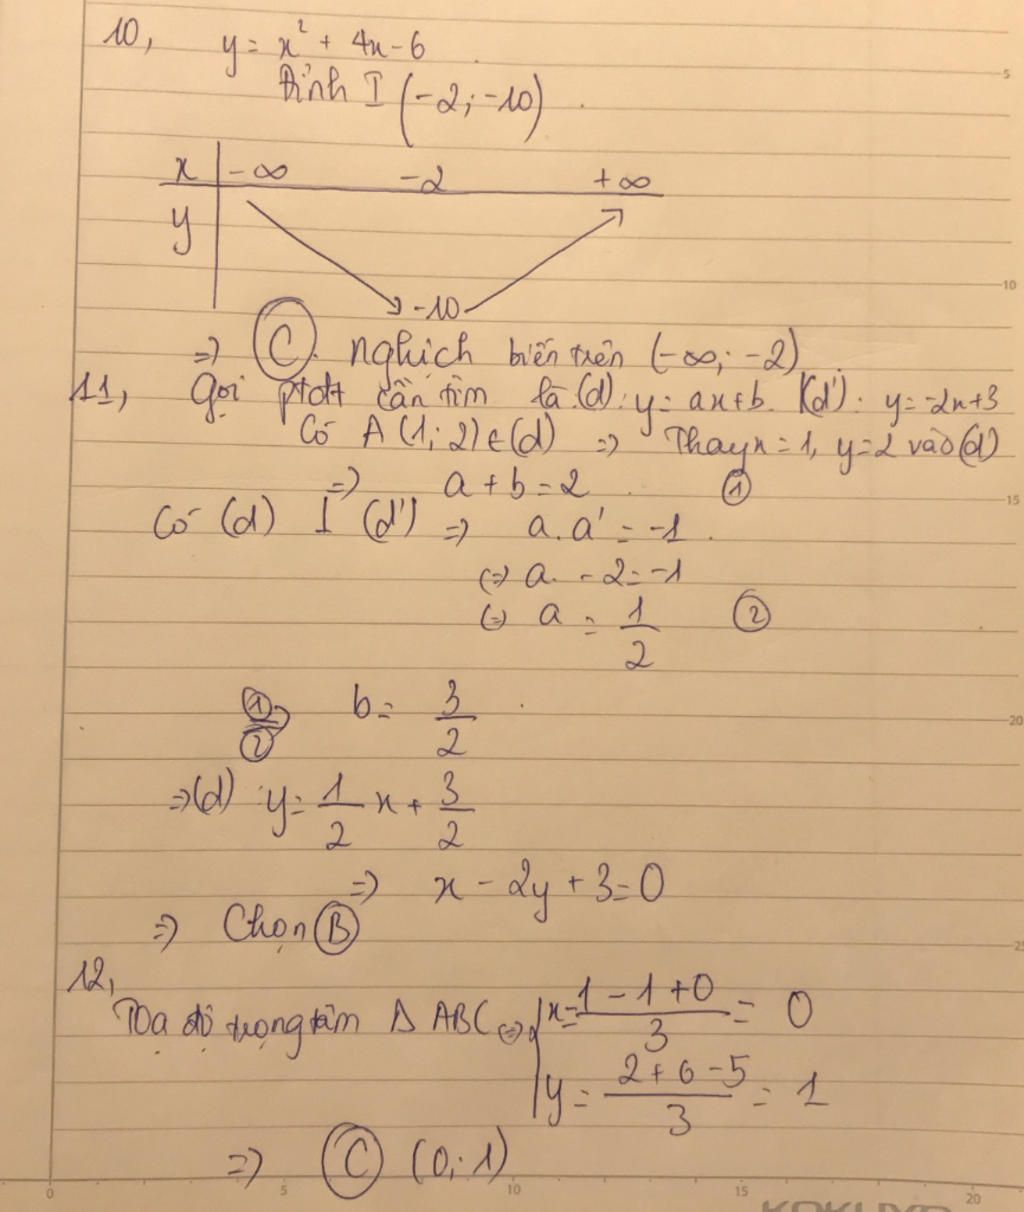 10, y = x² + 4x - 6
Đỉnh I (-2; -10).
x | -∞ -2 +∞
y
-10
⇒ Ⓒ. nghịch biến trên (-∞; -2)
11, Gọi ptđt cần tìm là (d): y = ax+b. (d'): y = -2x+3
Có A (1; 2) ∈ (d) ⇒ Thay x = 1, y = 2 vào (d)
⇒ a + b = 2 ①
Có (d) ⊥ (d') ⇒ a. a' = -1.
(=) a. -2 = -1
(=) a = 1/2 ②
①, ② ⇒ b = 3/2.
⇒ (d) : y = 1/2 x + 3/2
⇒ x - 2y + 3 = 0
⇒ Chọn Ⓑ
12,
Tọa độ trọng tâm Δ ABC (=) { x = (1 - 1 + 0)/3 = 0
y = (2 + 6 - 5)/3 = 1
⇒ Ⓒ (0; 1)
5
10
15
20
25
0 5 10 15 20
KOKUYO